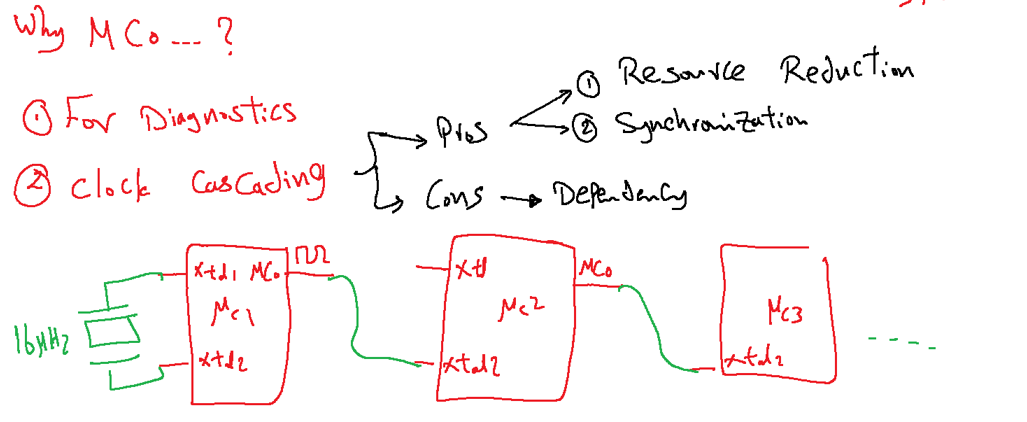 Why MCo ---- ?
① For Diagnostics
② Clock Cascading
Pros
① Resource Reduction
② Synchronization
Cons → Dependency
16MHz
xtd1 MCo
Mc1
xtd2
xtl MCo
Mc2
xtal2
Mc3
xtd2